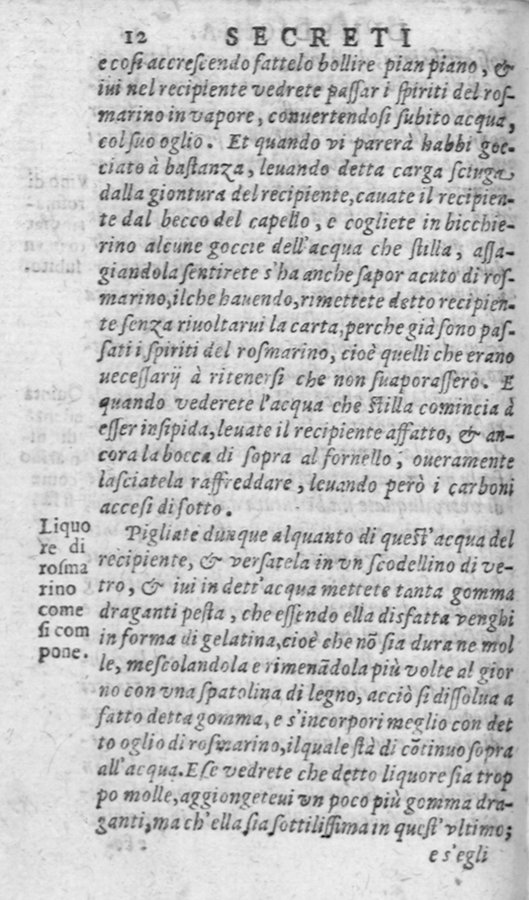 12 SECRETI
e cosi accrescendo fattelo bollire pian piano, &
iui nel recipiente vedrete passar i spiriti del ros-
marino in vapore, conuertendosi subito acqua,
col suo oglio. Et quando vi parerà habbi goc-
ciato à bastanza, leuando detta carga sciuga
dalla giontura del recipiente, cauate il recipien-
te dal becco del capello, e cogliete in bicchie-
rino alcune goccie dell'acqua che stilla, assa-
giandola sentirete s'ha anche sapor acuto di ros-
marino, ilche hauendo, rimettete detto recipien-
te senza riuoltarui la carta, perche già sono pas-
sati i spiriti del rosmarino, cioè quelli che erano
uecessarij à ritenersi che non suaporassero. E
quando vederete l'acqua che stilla comincia à
esser insipida, leuate il recipiente affatto, & an-
cora la bocca di sopra al fornello, oueramente
lasciatela raffreddare, leuando però i carboni
accesi di sotto.
Liquo
re di
rosma
rino
come
si com
pone.
Pigliate dunque alquanto di quest'acqua del
recipiente, & versatela in vn scodellino di ve-
tro, & iui in dett'acqua mettete tanta gomma
draganti pesta, che essendo ella disfatta venghi
in forma di gelatina, cioè che nō sia dura ne mol
le, mescolandola e rimenādola più volte al gior
no con vna spatolina di legno, acciò si dissolua a
fatto detta gomma, e s'incorpori meglio con det
to oglio di rosmarino, ilquale stà di cōtinuo sopra
all'acqua. E se vedrete che detto liquore sia trop
po molle, aggiongeteui vn poco più gomma dra-
ganti, ma ch'ella sia sottilissima in quest'vltimo;
e s'egli